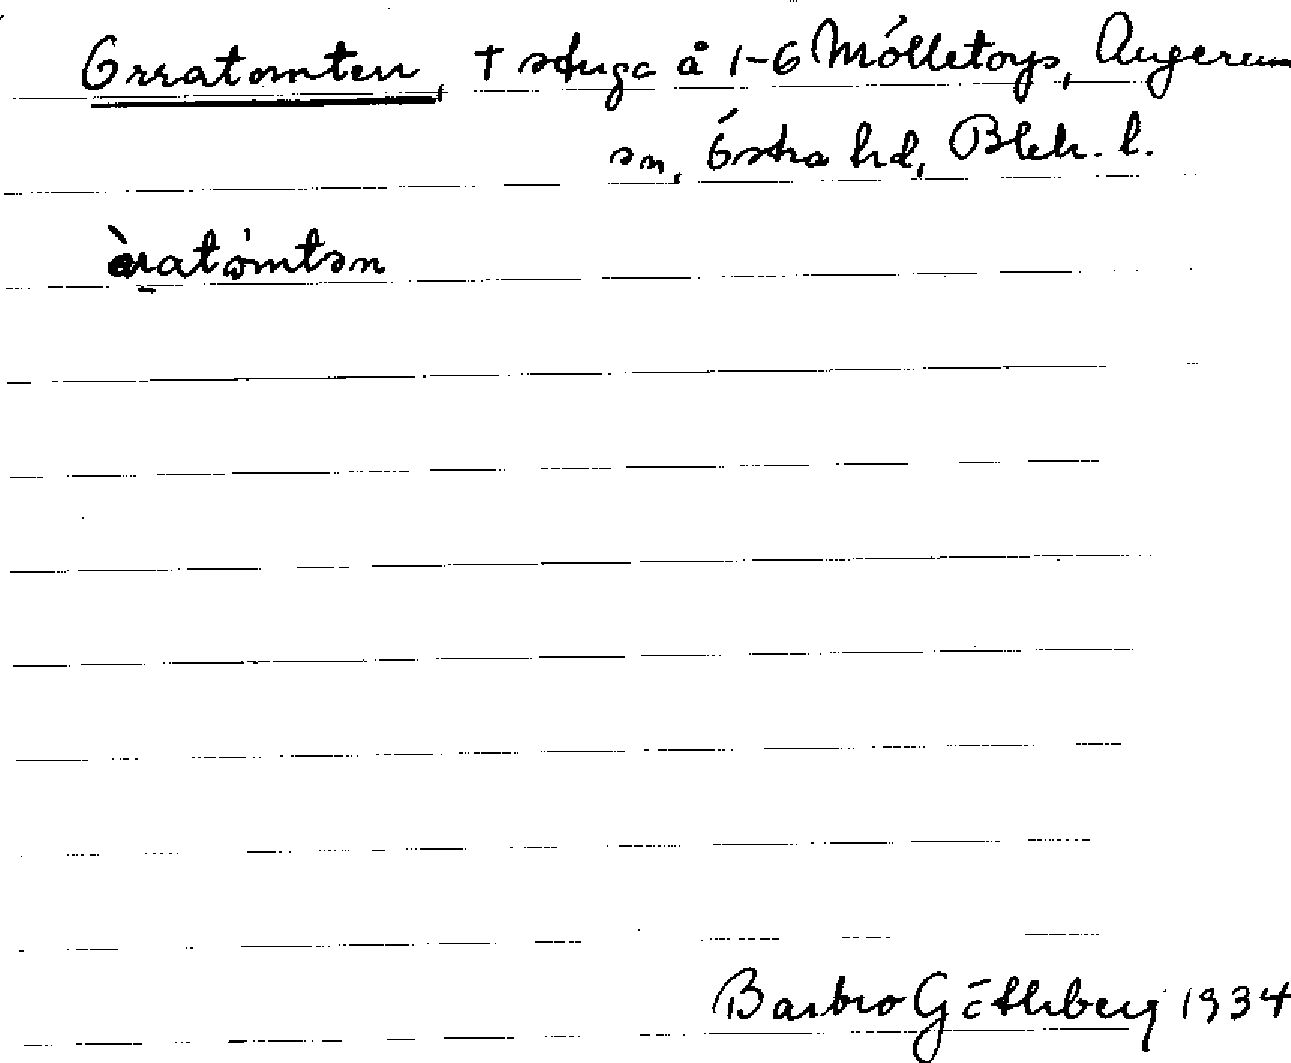 Orratomten, † stuga å 1-6 Mölletorp, Augerum
sn, Östra hd, Blek. l.
òratòmtən
Barbro Göthberg 1934